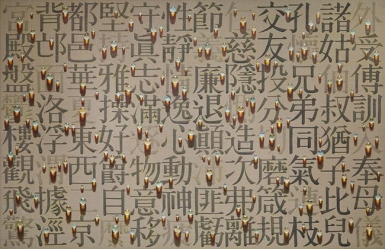 外受傅訓奉母
諸姑叔猶子比兒
孔兄弟同氣枝
交友投分磨箴規
慈隱造次弗離
節廉退顛匪虧
性靜逸心動神疲
守眞志滿物意移
堅雅操好爵自
都邑華東西京
背邙洛浮據涇
殿盤樓觀飛驚